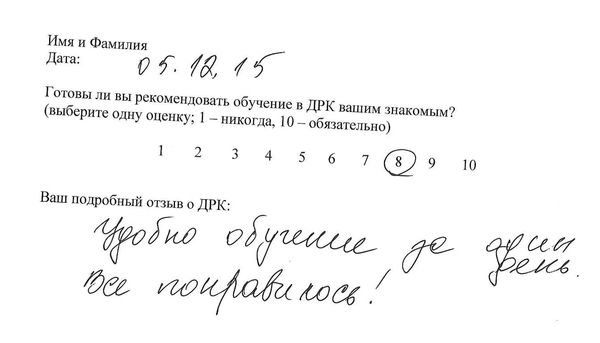 Имя и Фамилия
Дата: 05.12.15
Готовы ли вы рекомендовать обучение в ДРК вашим знакомым?
(выберите одну оценку; 1 – никогда, 10 – обязательно)
1 2 3 4 5 6 7 8 9 10
Ваш подробный отзыв о ДРК:
Удобно обучение за один
день.
Все понравилось!